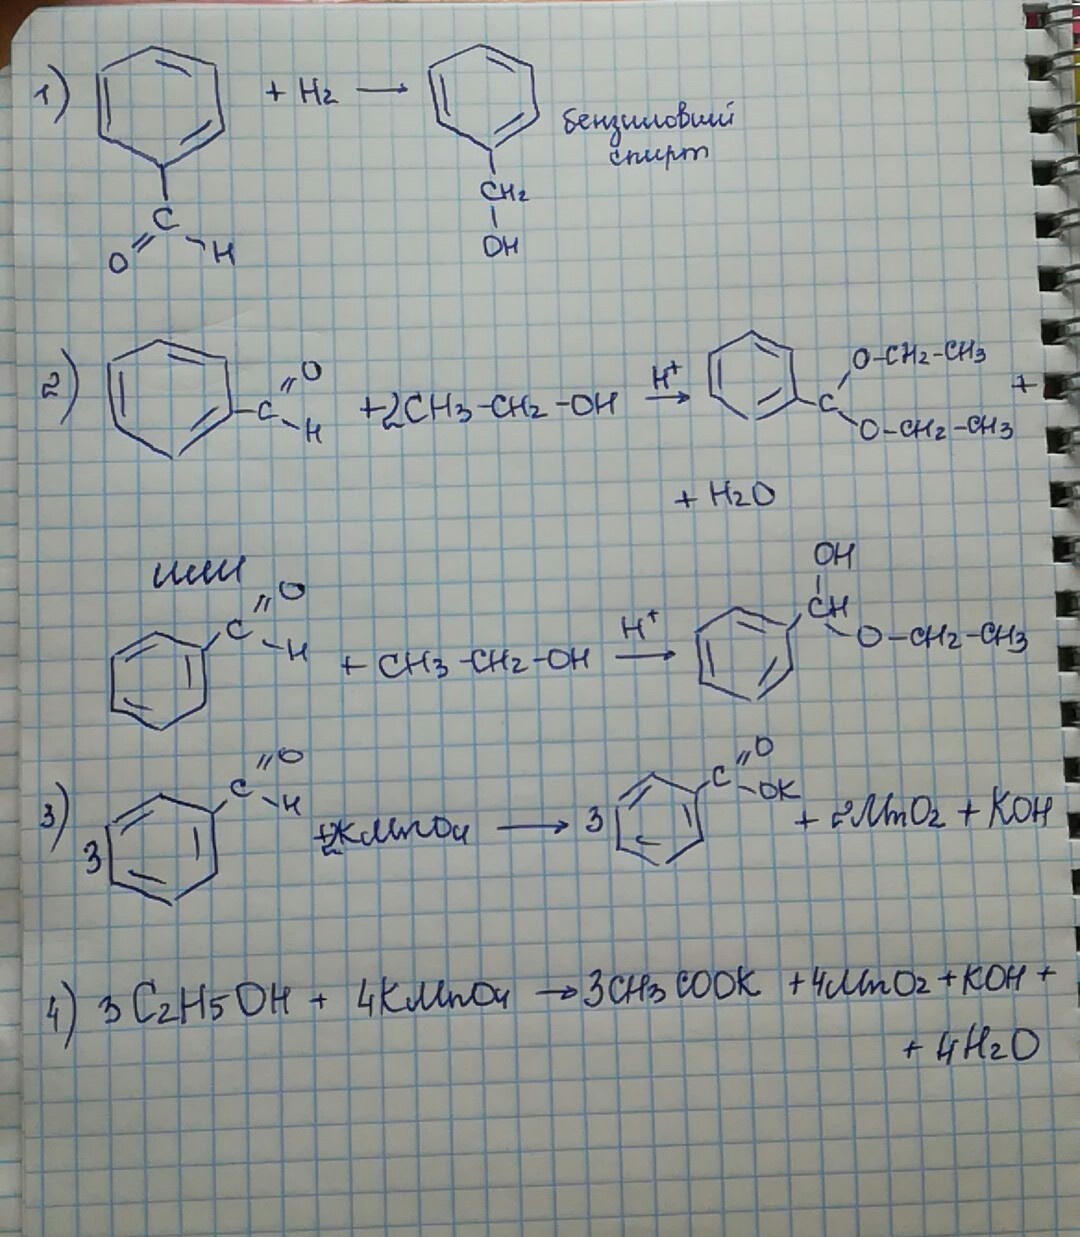 1) C O H + H2 → CH2 OH бензиловый спирт
2) C O H + 2CH3-CH2-OH H+ → C O-CH2-CH3 O-CH2-CH3 +
+ H2O
или
C O H + CH3-CH2-OH H+ → OH CH O-CH2-CH3
3) 3 C O H + 2KMnO4 → 3 C O OK + 2MnO2 + KOH
4) 3C2H5OH + 4KMnO4 → 3CH3COOK + 4MnO2 + KOH +
+ 4H2O